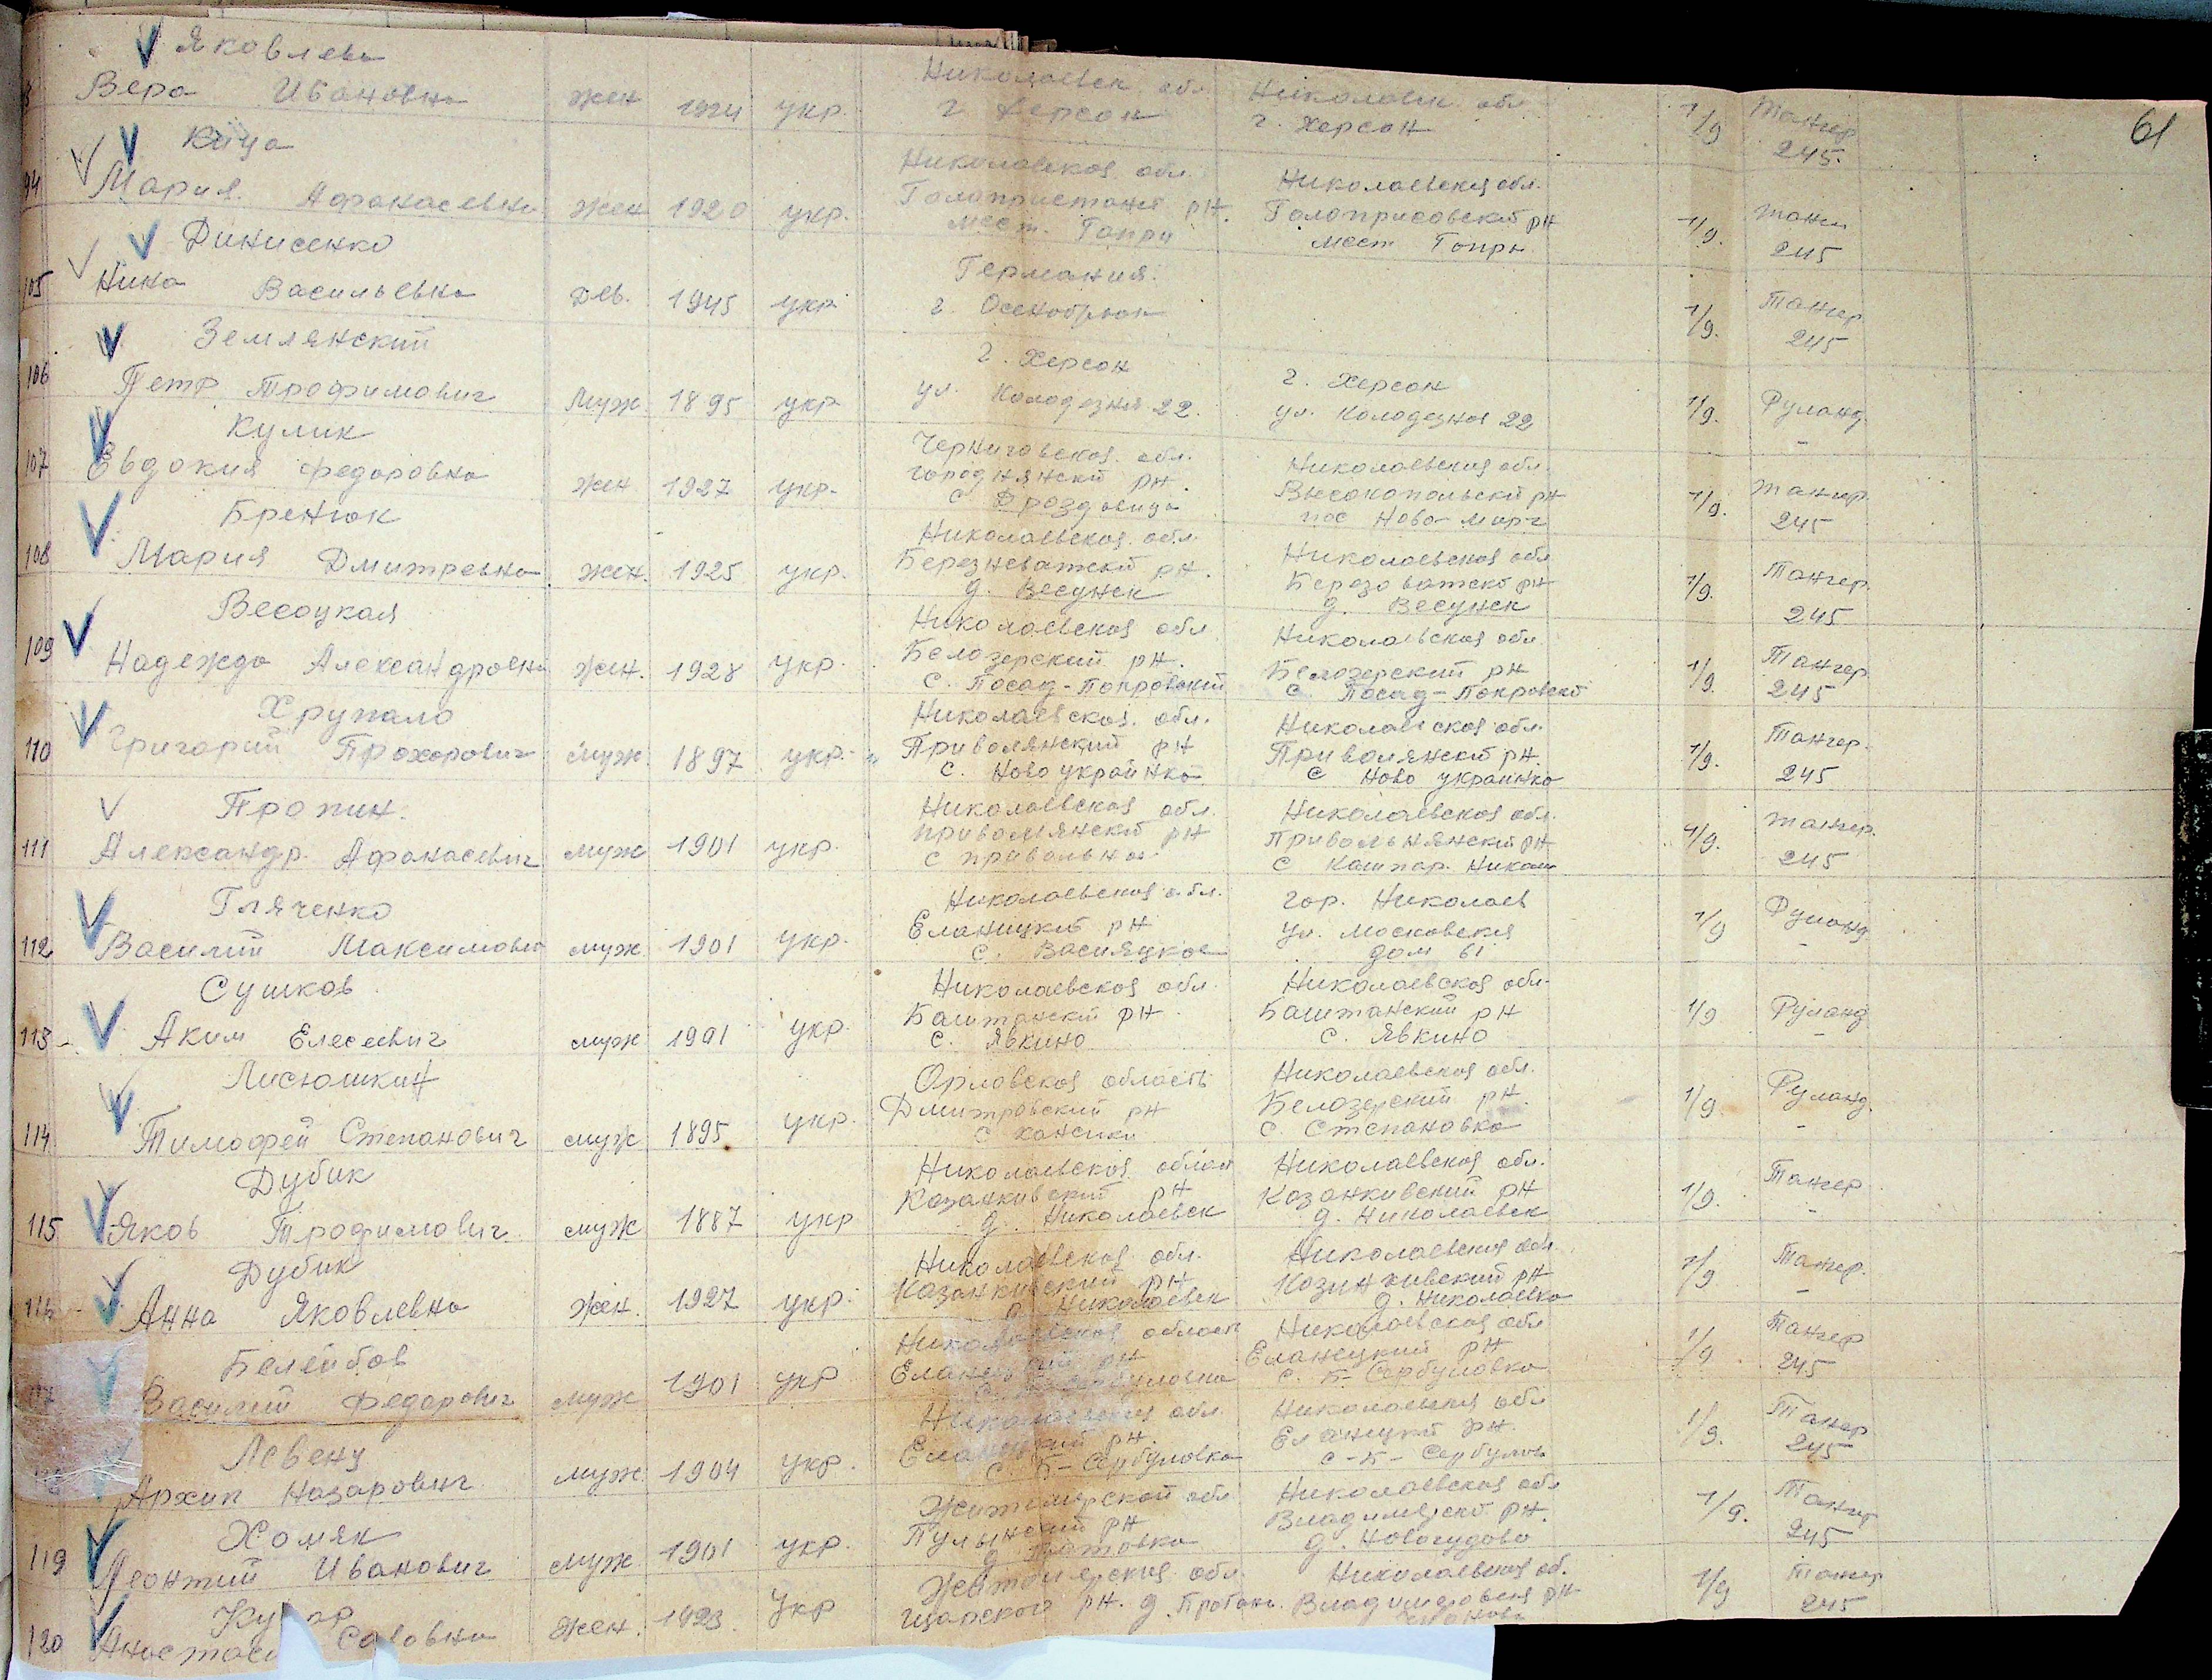 61
Яковлева
Вера Ивановна жен 1924 укр. Николаевск. обл. г. Херсон Николаевск. обл. г. Херсон 1/9 Тангер 245.
Куца
94 Мария Афанасевна жен 1920 укр. Николаевская обл. Голопристаня рн. мест. Гопри Николаевская обл. Голоприсовский рн мест Гопри 1/9. 245
Динисенко
105 Нина Васильевна дев. 1945 укр Германия. г. 1/9. Тангер 245
Землянский
106 Петр Трофимович Муж. 1895 укр г. Херсон ул. Колодезная 22. г. Херсон ул. Колодезная 22 1/9. Руланд -
Кулик
107 Евдокия Федоровна жен 1927 укр. Черниговская обл. городнянский рн. с Дроздовица Николаевская обл. Высокопольский рн пос Ново- 1/9. Тангер. 245
Бренюк
108 Мария Дмитревна жен. 1925 укр. Николаевская обл. Березневатский рн. д. Весунск Николаевская обл Березоватский рн д. Весунск 1/9. Тангер. 245
Весоцкая
109 Надежда Александровна жен. 1928 укр. Николаевская обл Белозерский рн. с. Посад-Покровский Николаевская обл. Белозерский рн с. Посад-Покровский 1/9. Тангер 245
Хрупало
110 Григорий Прохорович муж 1897 укр. Николаевская обл. Приволянский рн с. Ново украинка Николаевская обл. Приволянский рн. с Ново украинка 1/9. Тангер. 245
Пропин.
111 Александр Афанасевич муж 1901 укр. Николаевская обл. приволянский рн с привольная Николаевская обл. Привольнянский рн с 1/9. Тангер. 245
Гляченко
112 Василий Максимович муж 1901 укр. Николаевская обл. Еланицкий рн с. Васияцкое гор. Николаев ул. Московская дом 61 1/9 Руланд -
Сушков
113 Аким Елесевич муж 1901 укр. Николаевская обл. Баштанский рн. с. Явкино Николаевская обл. Баштанский рн с. Явкино 1/9 Руланд -
Лисюшкин
114 Тимофей Степанович муж 1895 укр. Орловская область Дмитровский рн с Николаевская обл. Белозерский рн. с. Степановка 1/9. Руланд. -
Дубик
115 Яков Трофимович муж 1887 укр Николаевская област Казанкивский рн д. Николаевск Николаевская обл. Казанкивский рн д. Николаевск 1/9. Тангер -
Дубик
116 Анна Яковлевна жен. 1927 укр. Николаевская обл. Казанкивский рн д. Николаевск Николаевская обл. Казанкивский рн д. Николаевка 1/9 Тангер. -
Белейбов
117 Василий Федорович муж 1901 укр Николаевская област Еланецкий рн Николаевская обл Еланецкий рн с. Б-Сербуловка 1/9 Тангер 245
Левенц
Архип Назарович муж 1904 укр. Николаевская обл Еланецкий рн. с. Б-Сербуловка Николаевская обл Еланецкий рн. с-Б- Сербулов 1/9. Тангер 245
Хомяк
119 Леонтий Иванович муж 1901 укр. Житомирской обл Пулынский рн Николаевская обл Владимирский рн. д. 1/9. Тангер 245
120 Анастаси Савовна жен. 1923. укр Житомирская обл. рн. д. Николаевская об. Владимировская рн 1/9 Тангер 245